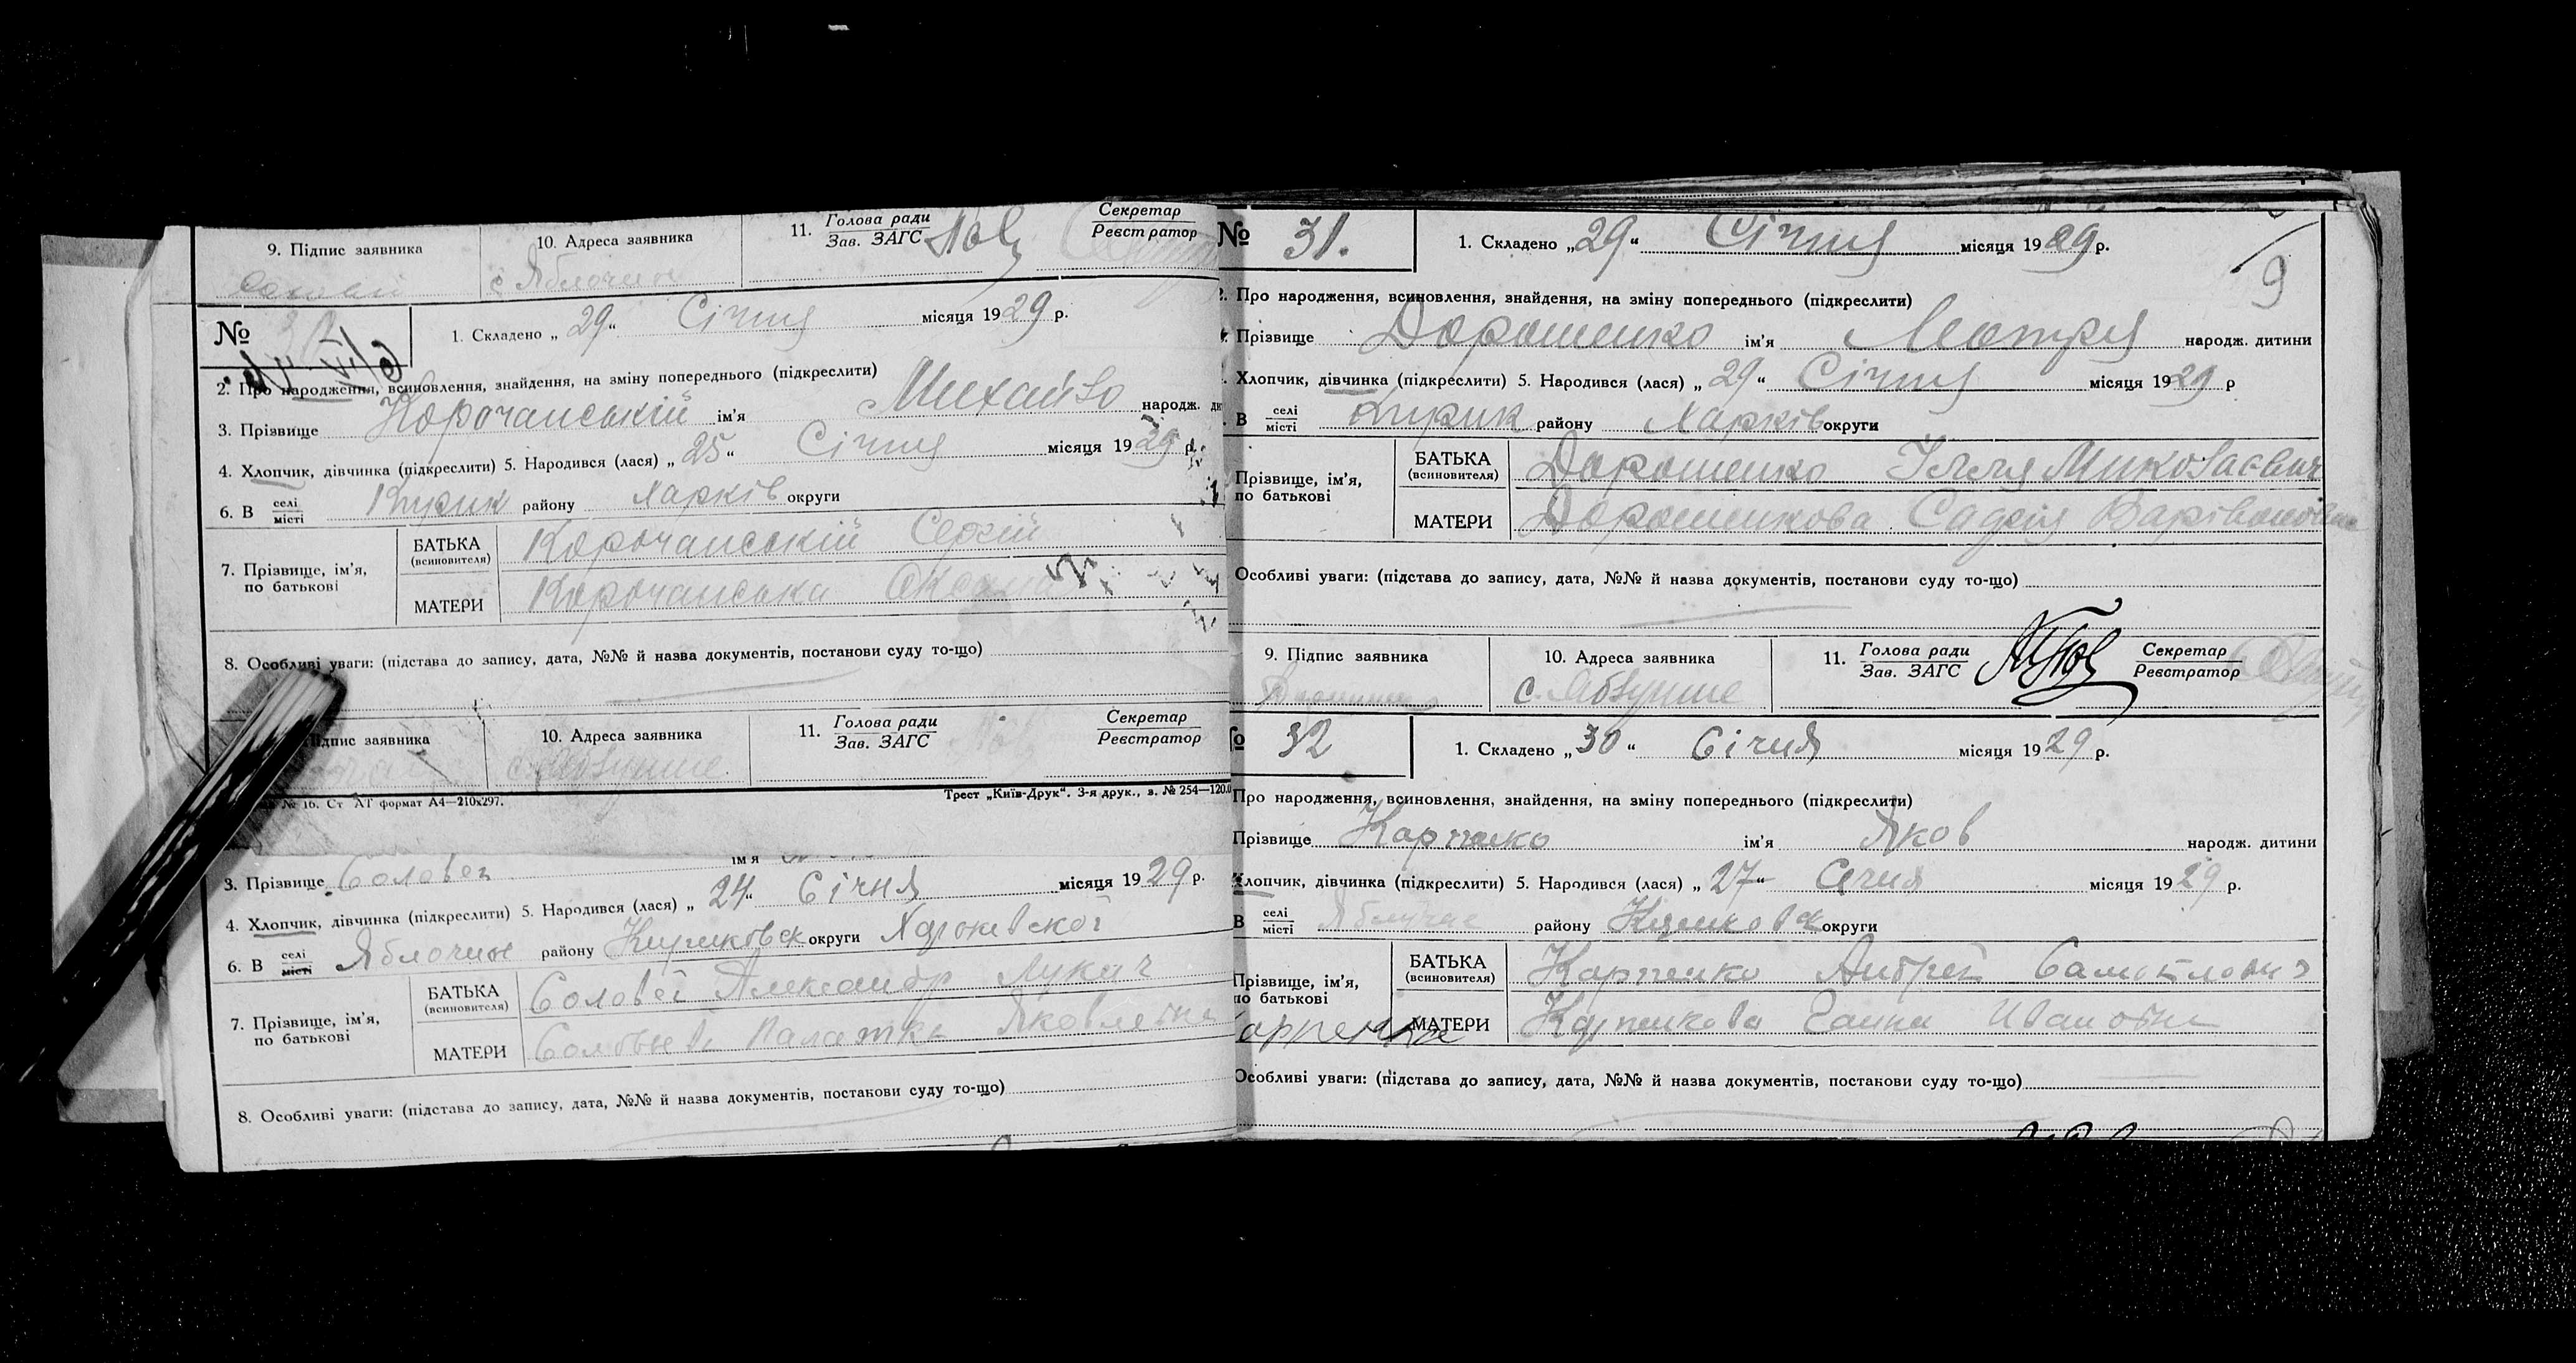 9. Підпис заявника 10. Адреса заявника 11. Голова ради Зав. ЗАГС Секретар Реєстратор
с Яблочин
№ 1. Складено „29“ Січня місяця 1929 р.
2. Про народження, всиновлення, знайдення, на зміну попереднього (підкреслити)
3. Прізвище Корочанський ім'я Михайло народж.
4. Хлопчик, дівчинка (підкреслити) 5. Народився (лася) „25“ Січня місяця 1929 р.
6. В селі місті Кирик району Харків округи
7. Прізвище, ім'я, по батькові
БАТЬКА (всиновителя) Корочанській Сергій
МАТЕРИ Корочанська
8. Особливі уваги: (підстава до запису, дата, №№ й назва документів, постанови суду то-що)
Підпис заявника 10. Адреса заявника 11. Голова ради Зав. ЗАГС Секретар Реєстратор
№ 16. Ст АТ формат А4—210х297. Трест „Київ-Друк“. 3-я друк., в. № 254—120.0
3. Прізвище Соловей ім'я
4. Хлопчик, дівчинка (підкреслити) 5. Народився (лася) „24“ Січня місяця 1929 р.
6. В селі місті Яблочин району Кириковск округи Харкивской
7. Прізвище, ім'я, по батькові
БАТЬКА (всиновителя) Соловей Александр Лукич
МАТЕРИ Яковлевна
8. Особливі уваги: (підстава до запису, дата, №№ й назва документів, постакови суду то-що)
№ 31. 1. Складено „29“ Січня місяця 1929 р.
9
Про народження, всиновлення, знайдення, на зміну попереднього (підкреслити)
Прізвище Дорошенко ім'я Мотря народж. дитини
Хлопчик, дівчинка (підкреслити) 5. Народився (лася) „29“ Січня місяця 1929 р
В селі місті Кирик району Харків округи
Прізвище, ім'я, по батькові
БАТЬКА (всиновителя) Дорошенко Ілля Миколаєвич
МАТЕРИ Дорошенкова
Особливі уваги: (підстава до запису, дата, №№ й назва документів, постанови суду то-що)
9. Підпис заявника 10. Адреса заявника 11. Голова ради Зав. ЗАГС Секретар Реєстратор
с.
№ 32 1. Складено „30“ Січня місяця 1929 р.
Про народження, всиновлення, знайдення, на зміну попереднього (підкреслити)
Прізвище Карпенко ім'я Яков народж. дитини
Хлопчик, дівчинка (підкреслити) 5. Народився (лася) „27“ Січня місяця 1929 р.
В селі місті району Кириковск округи
Прізвище, ім'я, по батькові
БАТЬКА (всиновителя) Карпенко Андрей Самойлович
МАТЕРИ Карпенкова Ганна Ивановна
Особливі уваги: (підстава до запису, дата, №№ й назва документів, постакови суду то-що)